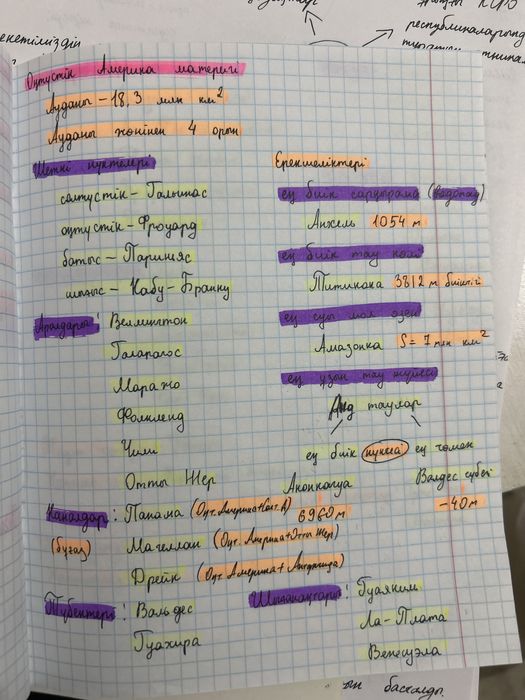 Оңтүстік Америка материгі
Ауданы - 18,3 млн км²
Ауданы жөнінен 4 орын
Шеткі нүктелері
солтүстік - Гальинас
оңтүстік - Фроуард
батыс - Париняс
шығыс - Кабу-Бранку
Аралдары: Веллингтон
Галапагос
Маражо
Фолкленд
Чили
Отты Жер
Каналдар: Панама (Оңт. Америка+Солт. А)
(бұғаз) Магеллан (Оңт. Америка+Отты Жер)
Дрейк (Оңт. Америка+Антарктида)
Түбектері: Вальдес
Гуахира
Ерекшеліктері
ең биік сарқырама (водопад)
Анхель 1054 м
ең биік тау көлі
Титикака 3812 м биіктігі
ең суы мол өзен
Амазонка S = 7 млн км²
ең ұзын тау жүйесі
Анд таулар
ең биік нүктесі ең төмен
Аконкагуа Валдес түбегі
6960 м -40 м
Шығанақтары: Гуаякиль
Ла-Плата
Венесуэла
республикаларында